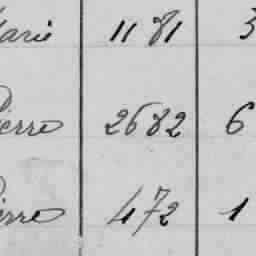 Marie 1181 3
Pierre 2682 6
Pierre 472 1